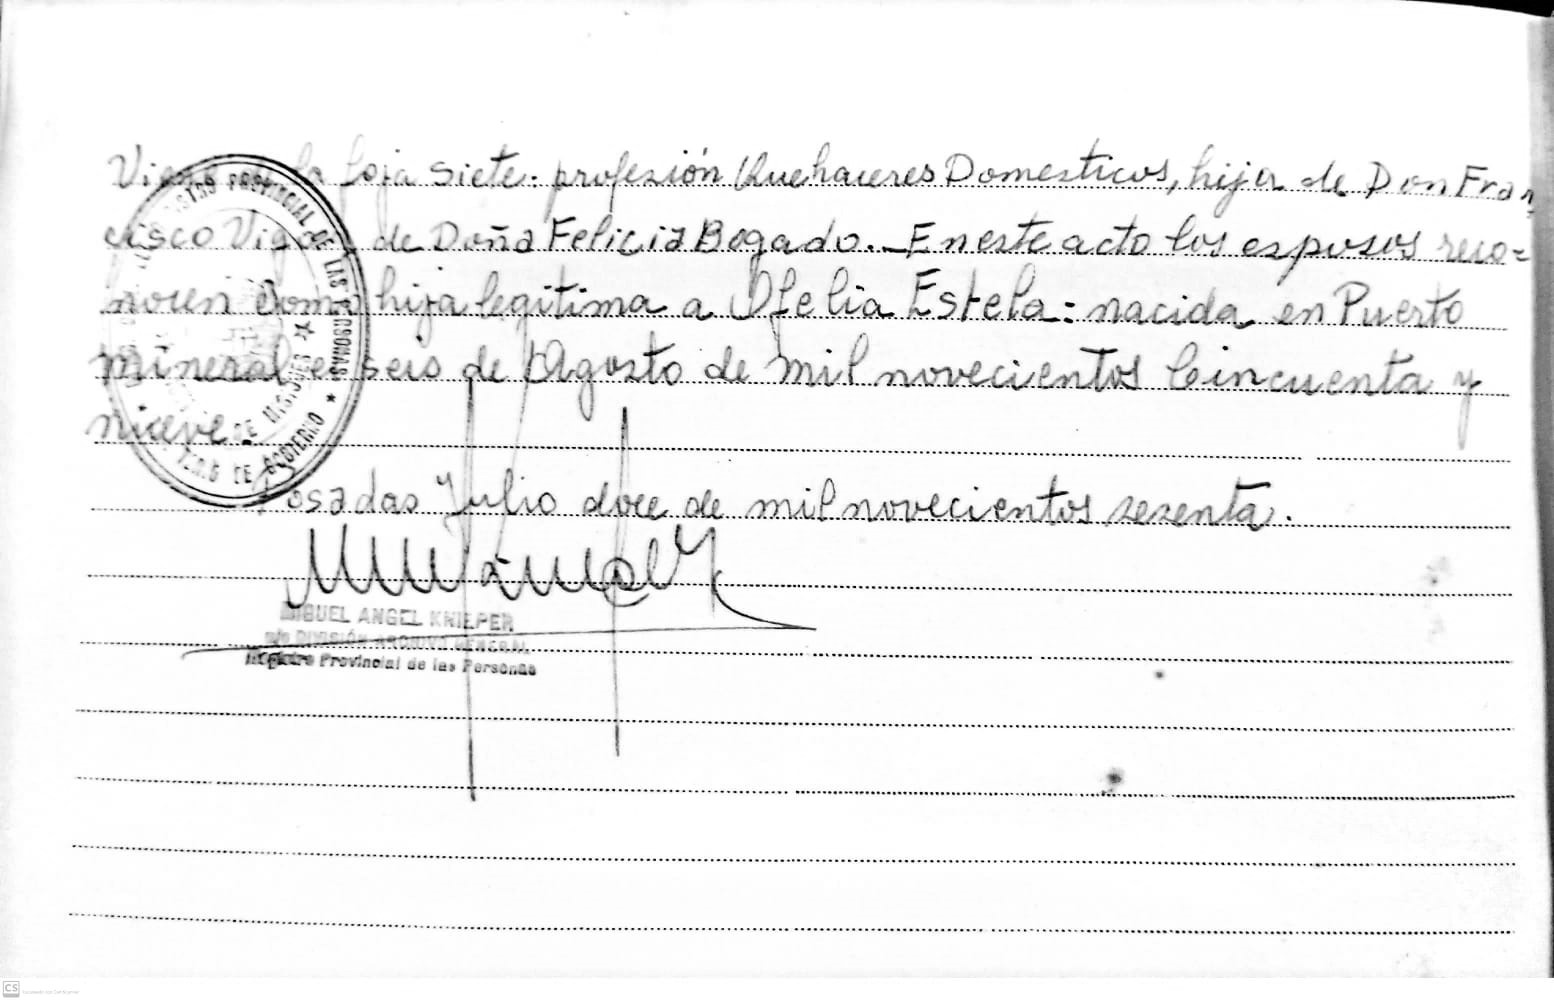 Viene de la foja siete. profesión Quehaceres Domesticos, hija de Don Fran
cisco Viga y de Doña Felicia Bogado. — En este acto los esposos reco=
nocen como hija legitima a Ofelia Estela: nacida en Puerto
mineral el seis de Agosto de mil novecientos Cincuenta y
nueve.
Posadas Julio doce de mil novecientos sesenta.
MIGUEL ANGEL KNIEPER
DIVISIÓN ARCHIVO GENERAL
Registro Provincial de las Personas
REGISTRO PROVINCIAL DE LAS PERSONAS
DE MISIONES
DE GOBIERNO
CS